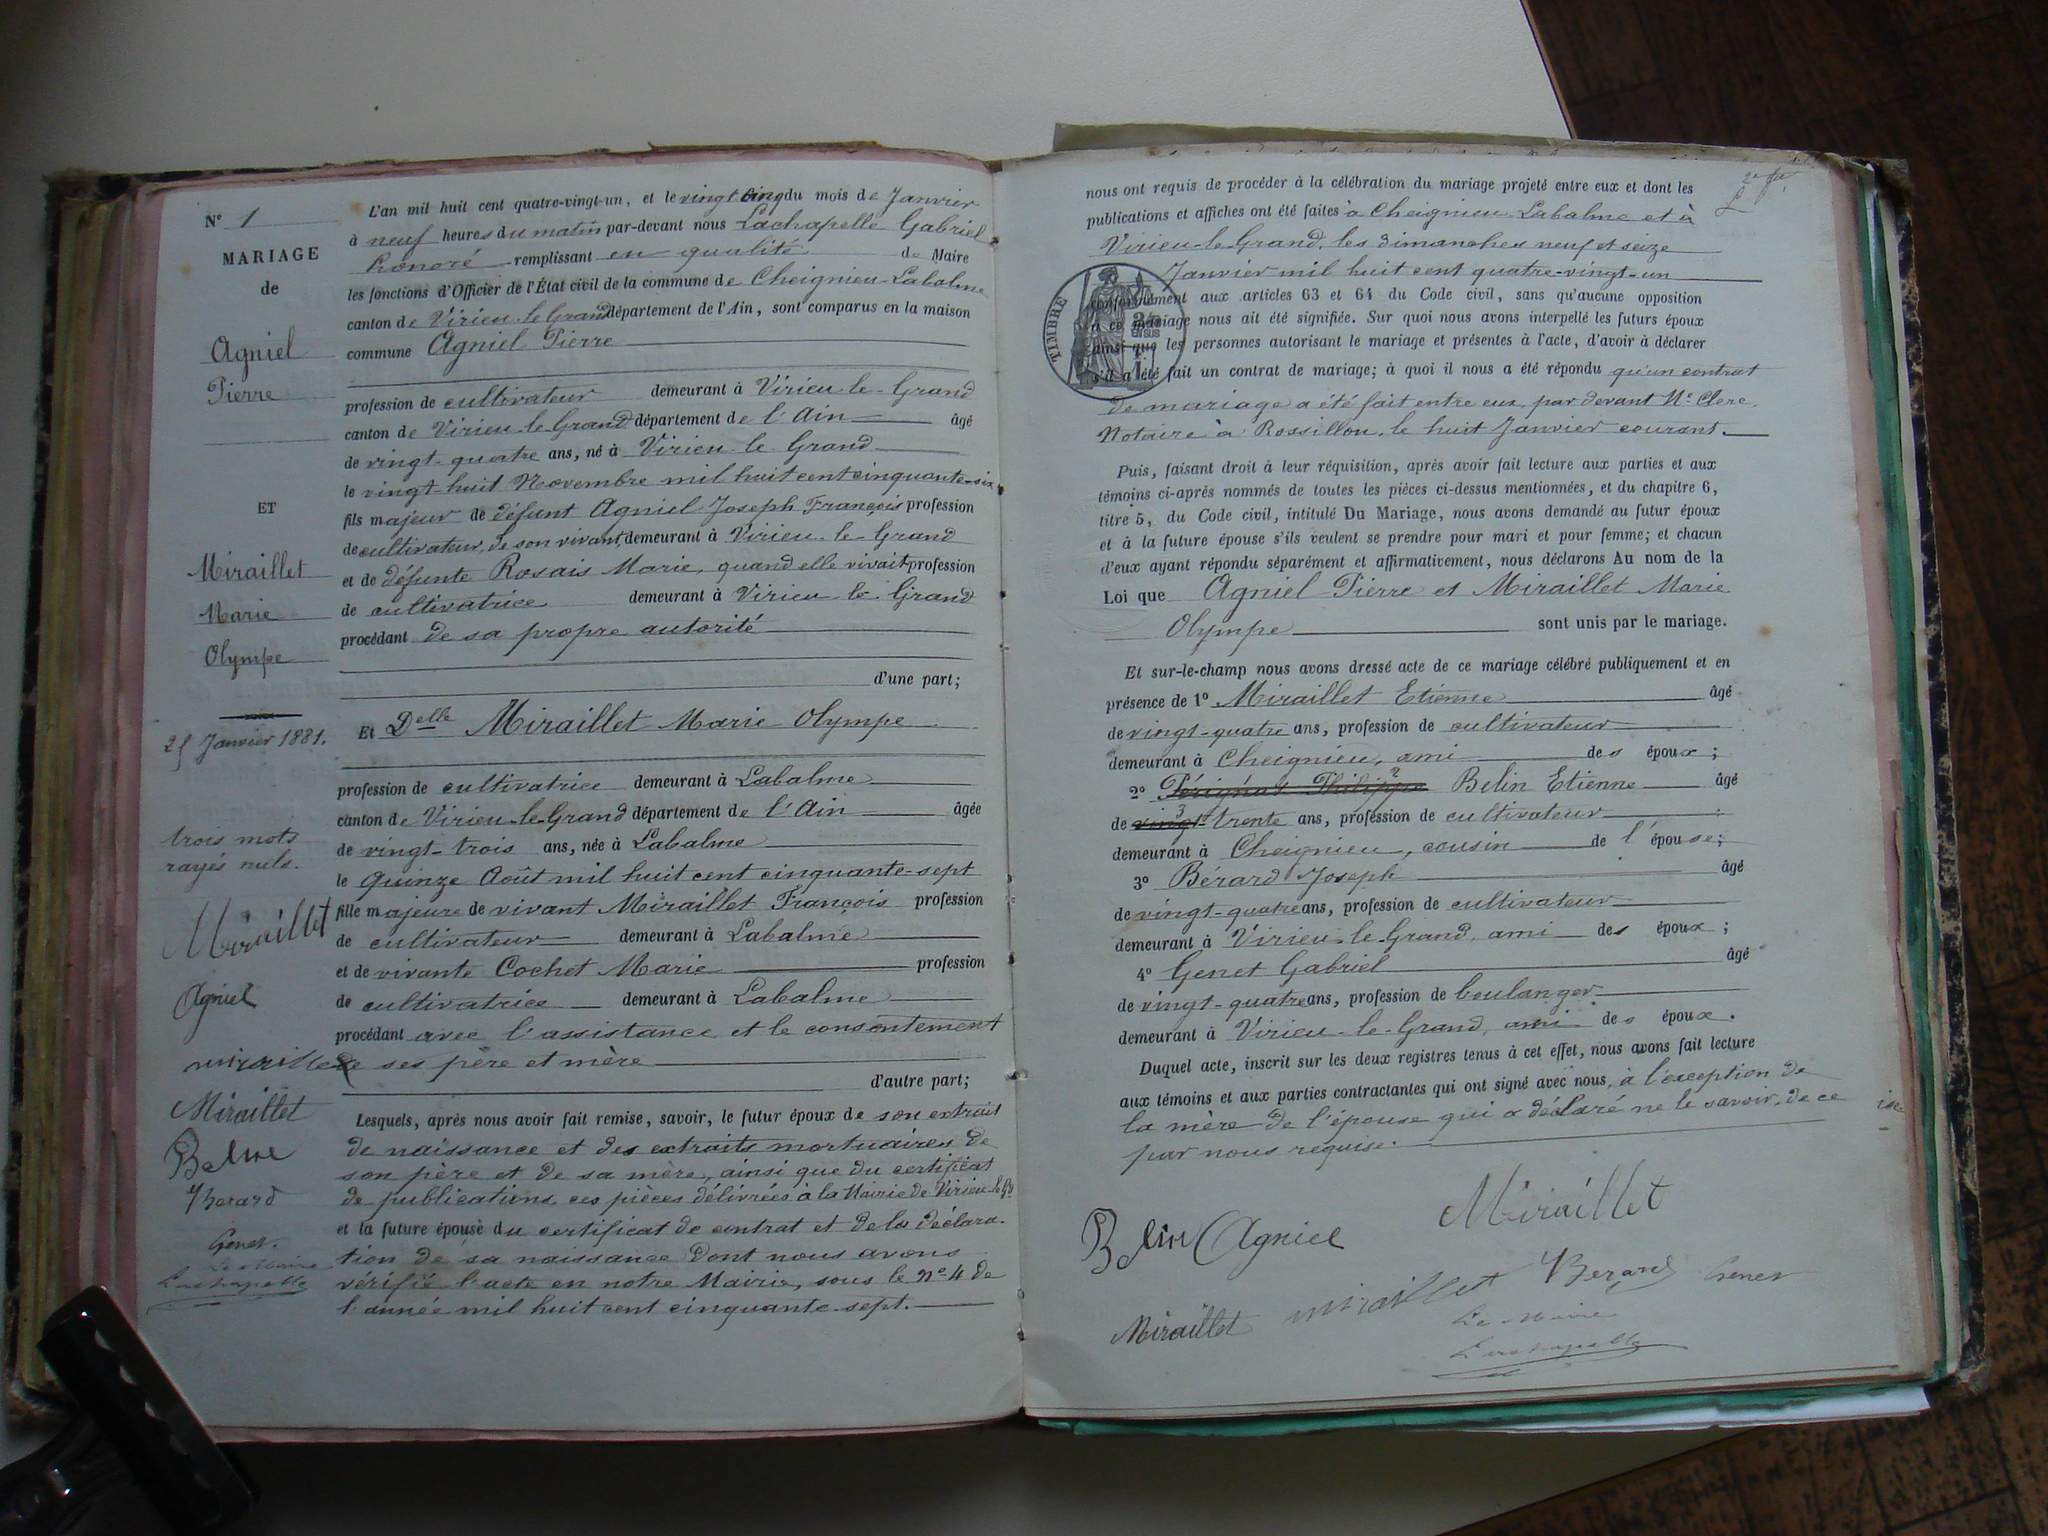 N° 1
MARIAGE
de
Agniel
Pierre
ET
Miraillet
Marie
Olympe
25 Janvier 1881.
trois mots
rayés nuls.
Miraillet
Agniel
miraillet
Miraillet
Belin
Berard
Genet
Le Maire
Lachapelle
L'an mil huit cent quatre-vingt-un, et le vingt cinq du mois de Janvier
à neuf heures du matin par-devant nous Lachapelle Gabriel
honoré remplissant en qualité de Maire
les fonctions d'Officier de l'État civil de la commune de Cheignieu-Labalme
canton de Virieu-le-Grand département de l'Ain, sont comparus en la maison
commune Agniel Pierre
profession de cultivateur demeurant à Virieu-le-Grand
canton de Virieu-le-Grand département de l'Ain âgé
de vingt-quatre ans, né à Virieu le Grand
le vingt-huit Novembre mil huit cent cinquante-six
fils majeur de défunt Agniel Joseph François profession
de cultivateur, de son vivant, demeurant à Virieu-le-Grand
et de défunte Rosais Marie, quand elle vivait profession
de cultivatrice demeurant à Virieu-le-Grand
procédant de sa propre autorité
d'une part;
Et Delle Miraillet Marie Olympe
profession de cultivatrice demeurant à Labalme
canton de Virieu-le-Grand département de l'Ain âgée
de vingt-trois ans, née à Labalme
le Quinze Août mil huit cent cinquante-sept
fille majeure de vivant Miraillet François profession
de cultivateur demeurant à Labalme
et de vivante Cochet Marie profession
de cultivatrice demeurant à Labalme
procédant avec l'assistance et le consentement
de ses père et mère
d'autre part;
Lesquels, après nous avoir fait remise, savoir, le futur époux de son extrait
de naissance et des extraits mortuaires de
son père et de sa mère, ainsi que du certificat
de publications, ces pièces délivrées à la Mairie de Virieu-le-Gd
et la future épouse du certificat de contrat et de la déclara-
tion de sa naissance dont nous avons
vérifié l'acte en notre Mairie, sous le N° 4 de
l'année mil huit cent cinquante-sept.
nous ont requis de procéder à la célébration du mariage projeté entre eux et dont les
publications et affiches ont été faites à Cheignieu-Labalme et à
Virieu-le-Grand, les dimanches neuf et seize
Janvier mil huit cent quatre-vingt-un
TIMBRE
conformément aux articles 63 et 64 du Code civil, sans qu'aucune opposition
à ce mariage nous ait été signifiée. Sur quoi nous avons interpellé les futurs époux
ainsi que les personnes autorisant le mariage et présentes à l'acte, d'avoir à déclarer
s'il a été fait un contrat de mariage; à quoi il nous a été répondu qu'un contrat
de mariage a été fait entre eux par devant Me Clerc,
Notaire à Rossillon, le huit Janvier courant.
Puis, faisant droit à leur réquisition, après avoir fait lecture aux parties et aux
témoins ci-après nommés de toutes les pièces ci-dessus mentionnées, et du chapitre 6,
titre 5, du Code civil, intitulé Du Mariage, nous avons demandé au futur époux
et à la future épouse s'ils veulent se prendre pour mari et pour femme; et chacun
d'eux ayant répondu séparément et affirmativement, nous déclarons Au nom de la
Loi que Agniel Pierre et Miraillet Marie
Olympe sont unis par le mariage.
Et sur-le-champ nous avons dressé acte de ce mariage célébré publiquement et en
présence de 1° Miraillet Etienne âgé
de vingt-quatre ans, profession de cultivateur
demeurant à Cheignieu, ami des époux;
2° Philippe Belin Etienne âgé
de vingt-trente ans, profession de cultivateur
demeurant à Cheignieu, cousin de l'épouse;
3° Bérard Joseph âgé
de vingt-quatre ans, profession de cultivateur
demeurant à Virieu-le-Grand, ami des époux;
4° Genet Gabriel âgé
de vingt-quatre ans, profession de boulanger
demeurant à Virieu-le-Grand, ami des époux.
Duquel acte, inscrit sur les deux registres tenus à cet effet, nous avons fait lecture
aux témoins et aux parties contractantes qui ont signé avec nous, à l'exception de
la mère de l'épouse qui a déclaré ne le savoir, de ce
par nous requise.
Belin Agniel Miraillet
Miraillet miraillet Berard Genet
Le Maire
Lachapelle